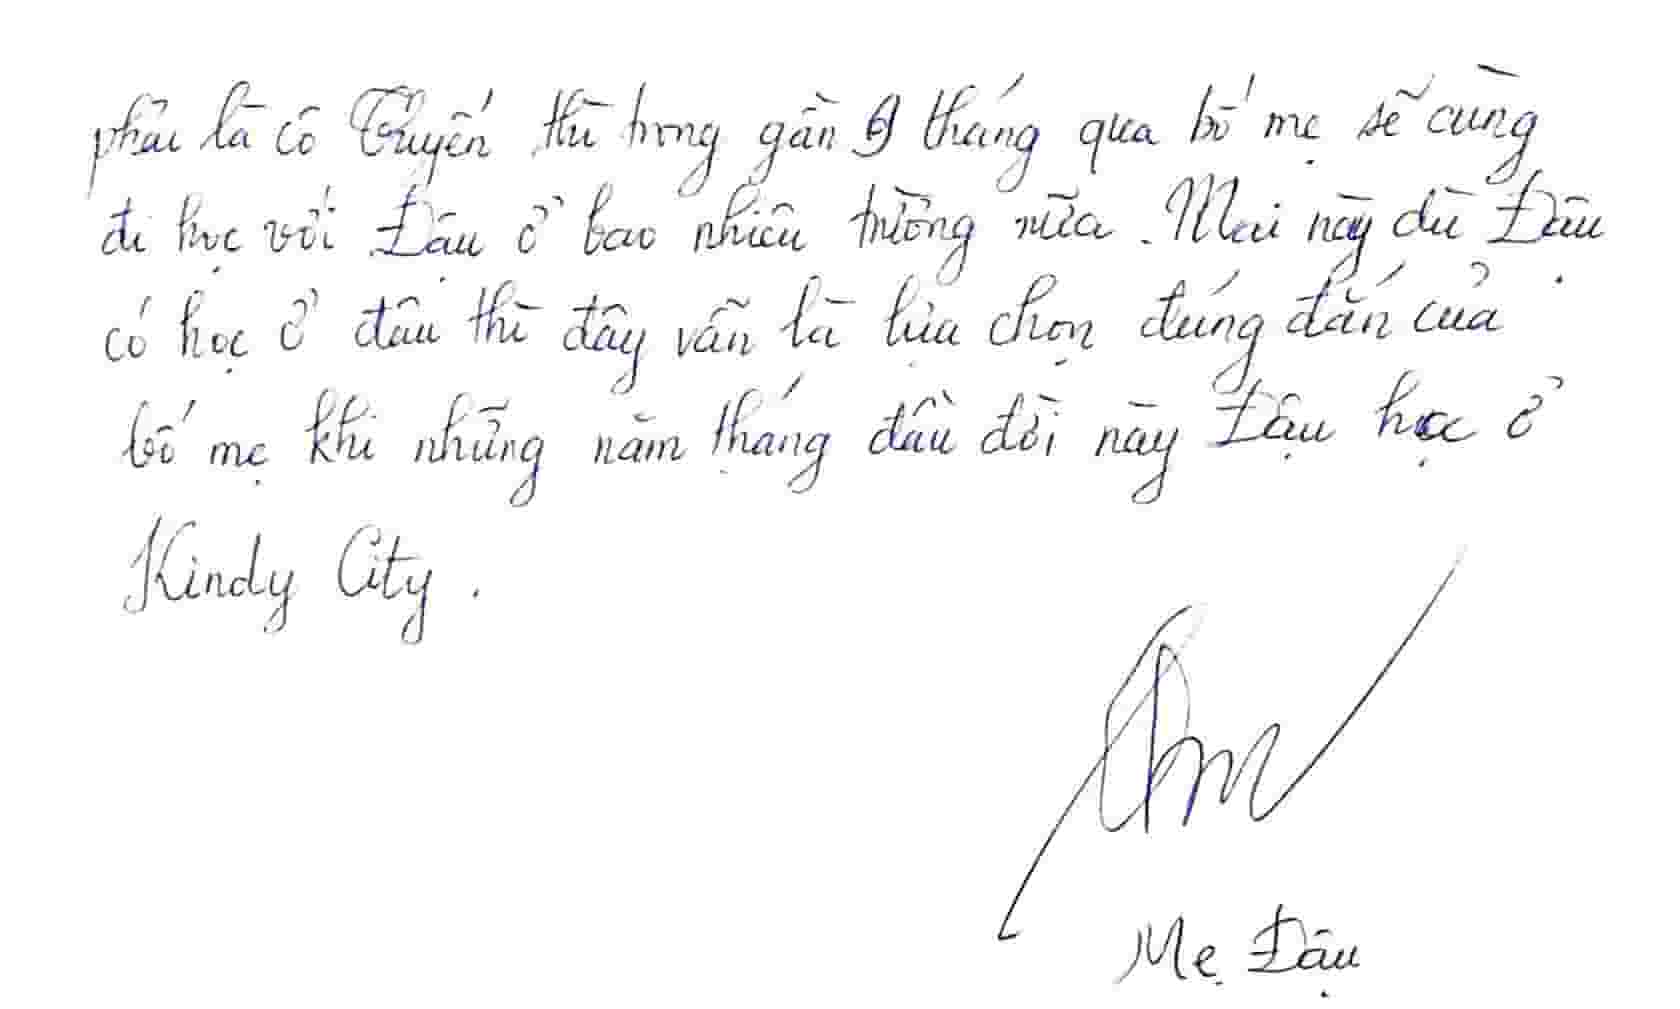 phải là cô Truyến thì trong gần 9 tháng qua bố mẹ sẽ cùng
đi học với Đậu ở bao nhiêu trường nữa. Mai này dù Đậu
có học ở đâu thì đây vẫn là lựa chọn đúng đắn của
bố mẹ khi những năm tháng đầu đời này Đậu học ở
Kindy City.
Mẹ Đậu